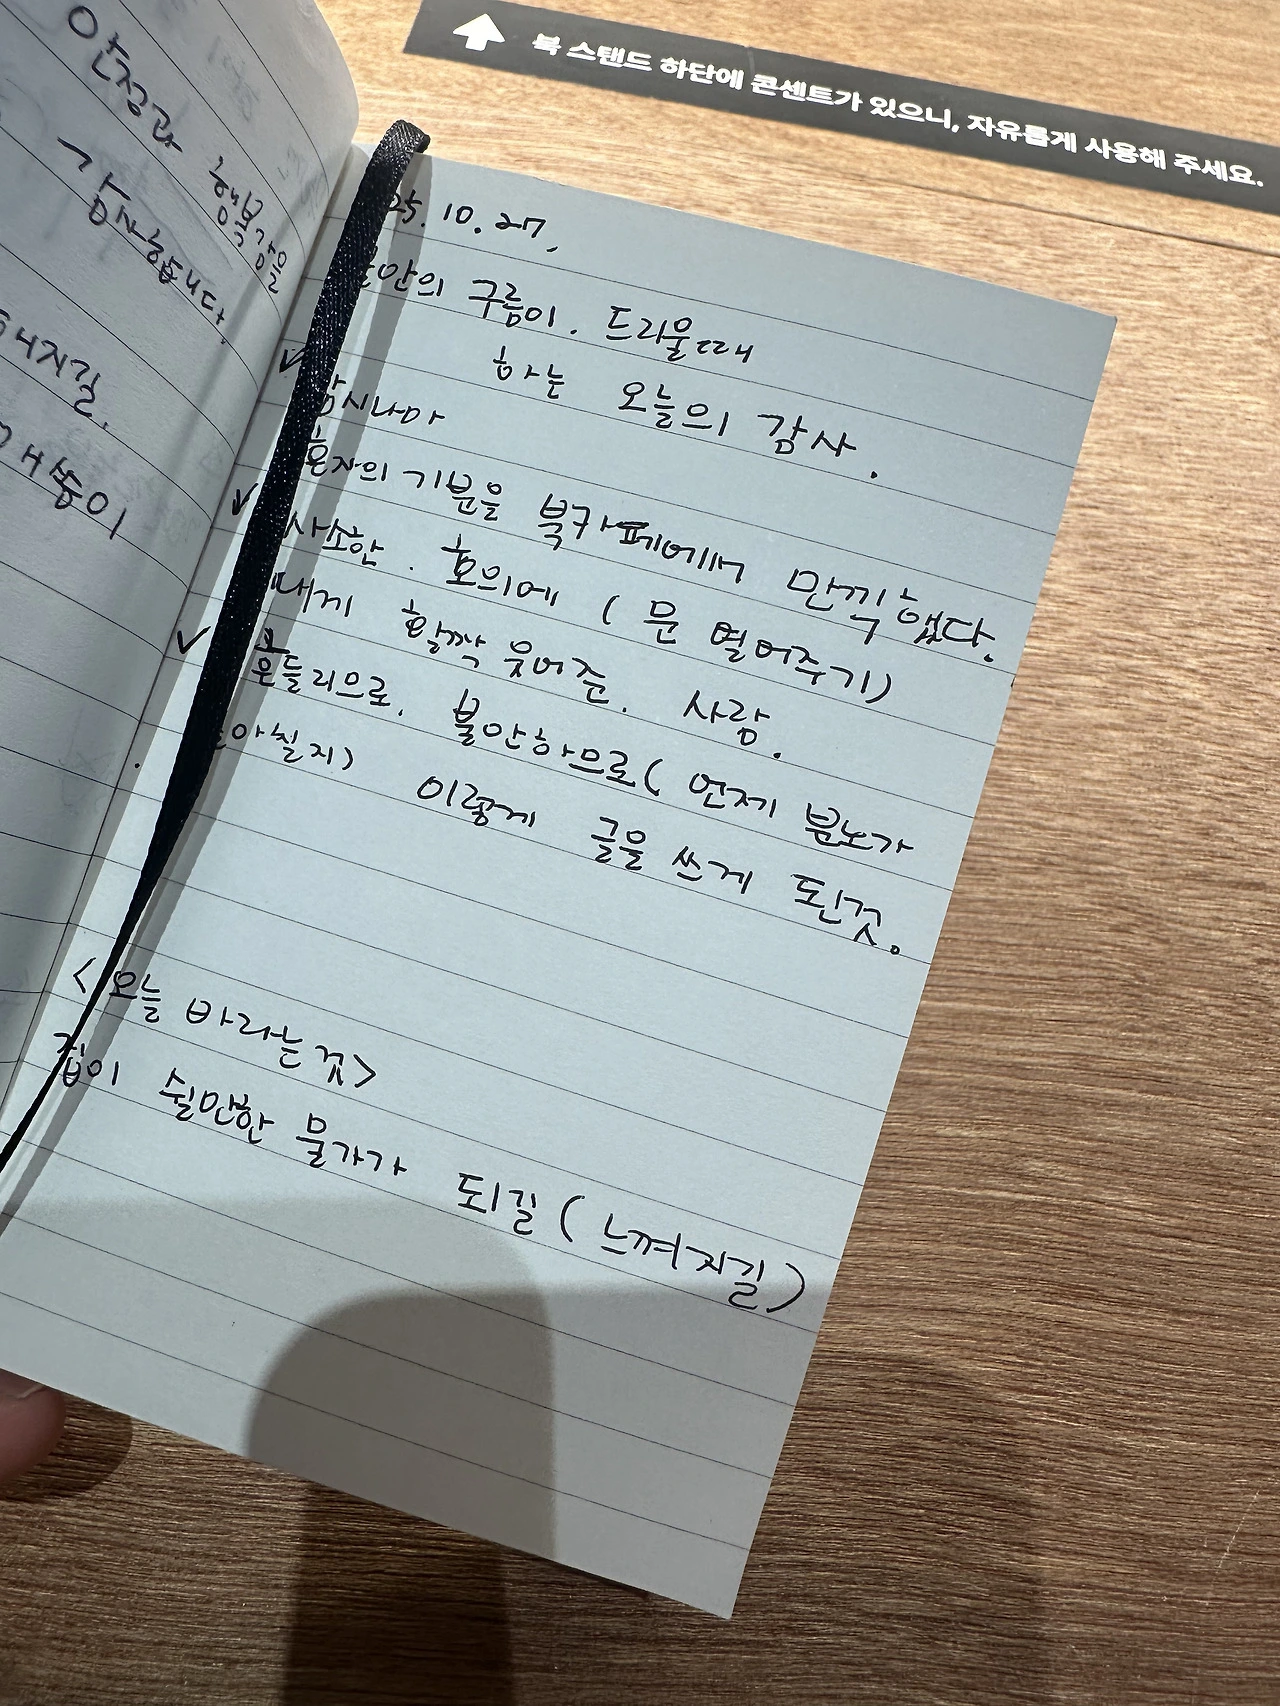 북 스탠드 하단에 콘센트가 있으니, 자유롭게 사용해 주세요.
안정과 행복감을
감사합니다.
내지길.
25. 10. 27,
구름이. 드리울때
하는 오늘의 감사.
✓ 잠시나마
혼자의 기분을 북카페에서 만끽했다.
✓ 사소한. 호의에 (문 열어주기)
내게 활짝 웃어준. 사람.
✓ 흔들리므로. 불안하므로( 언제 분노가
이렇게 글을 쓰게 된것.
<오늘 바라는것>
집이 쉴만한 물가가 되길 (느껴지길)